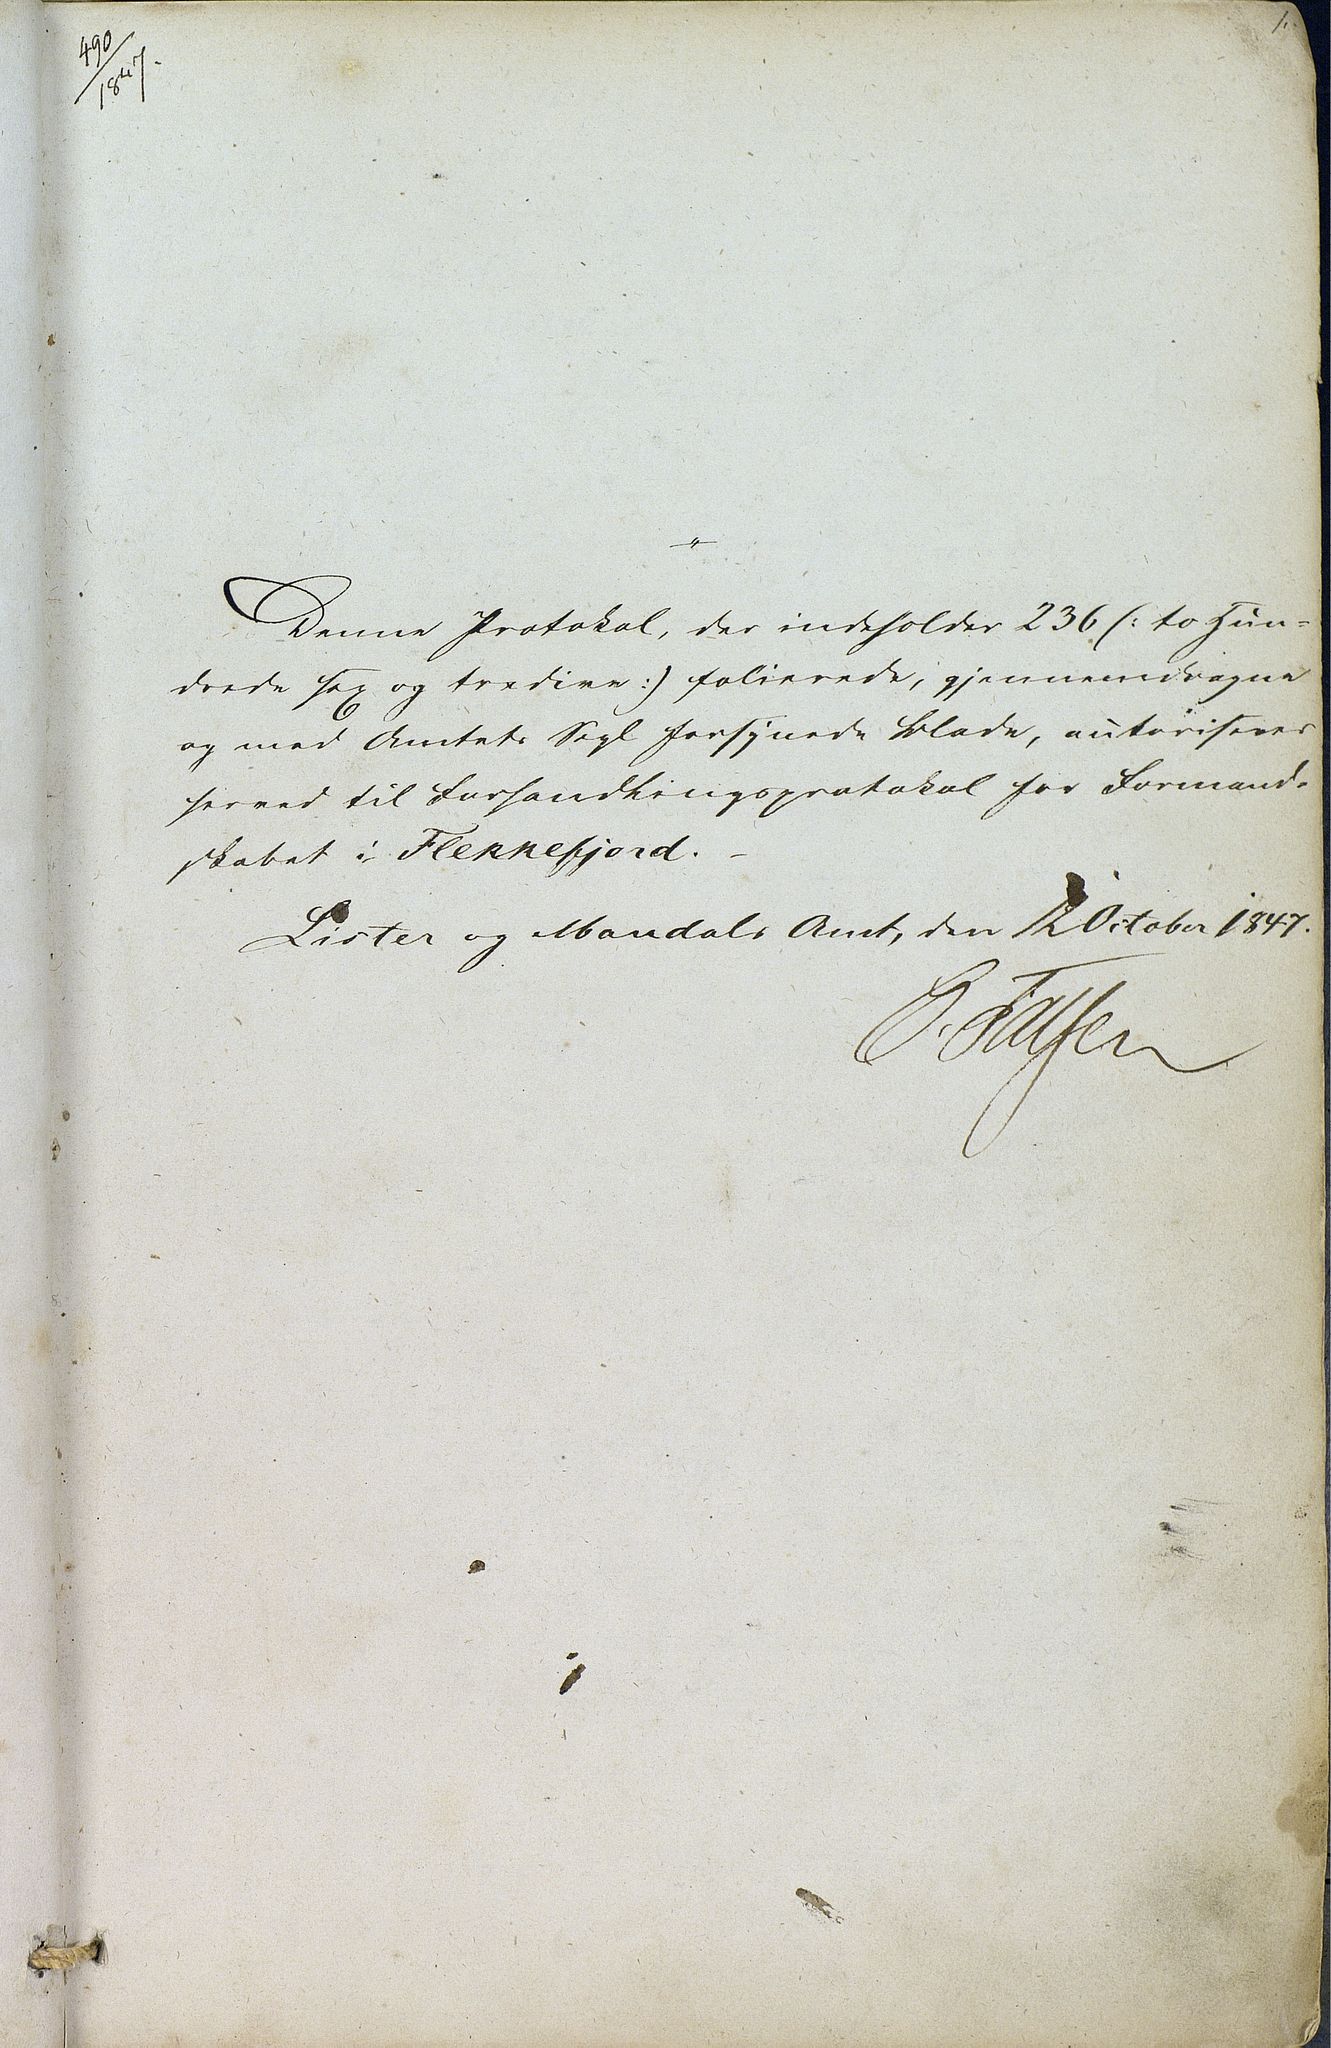 490/1847.
1.
Denne Protokol, der indeholder 236 (: to Hun=
drede sex og tredive :) folierede, gjennemdragne
og med Amtets Segl forsynede Blade, autoriseres
herved til Forhandlingsprotokol for Formand-
skabet i Flekkefjord. -
Lister og Mandals Amt, den 12 October 1847.